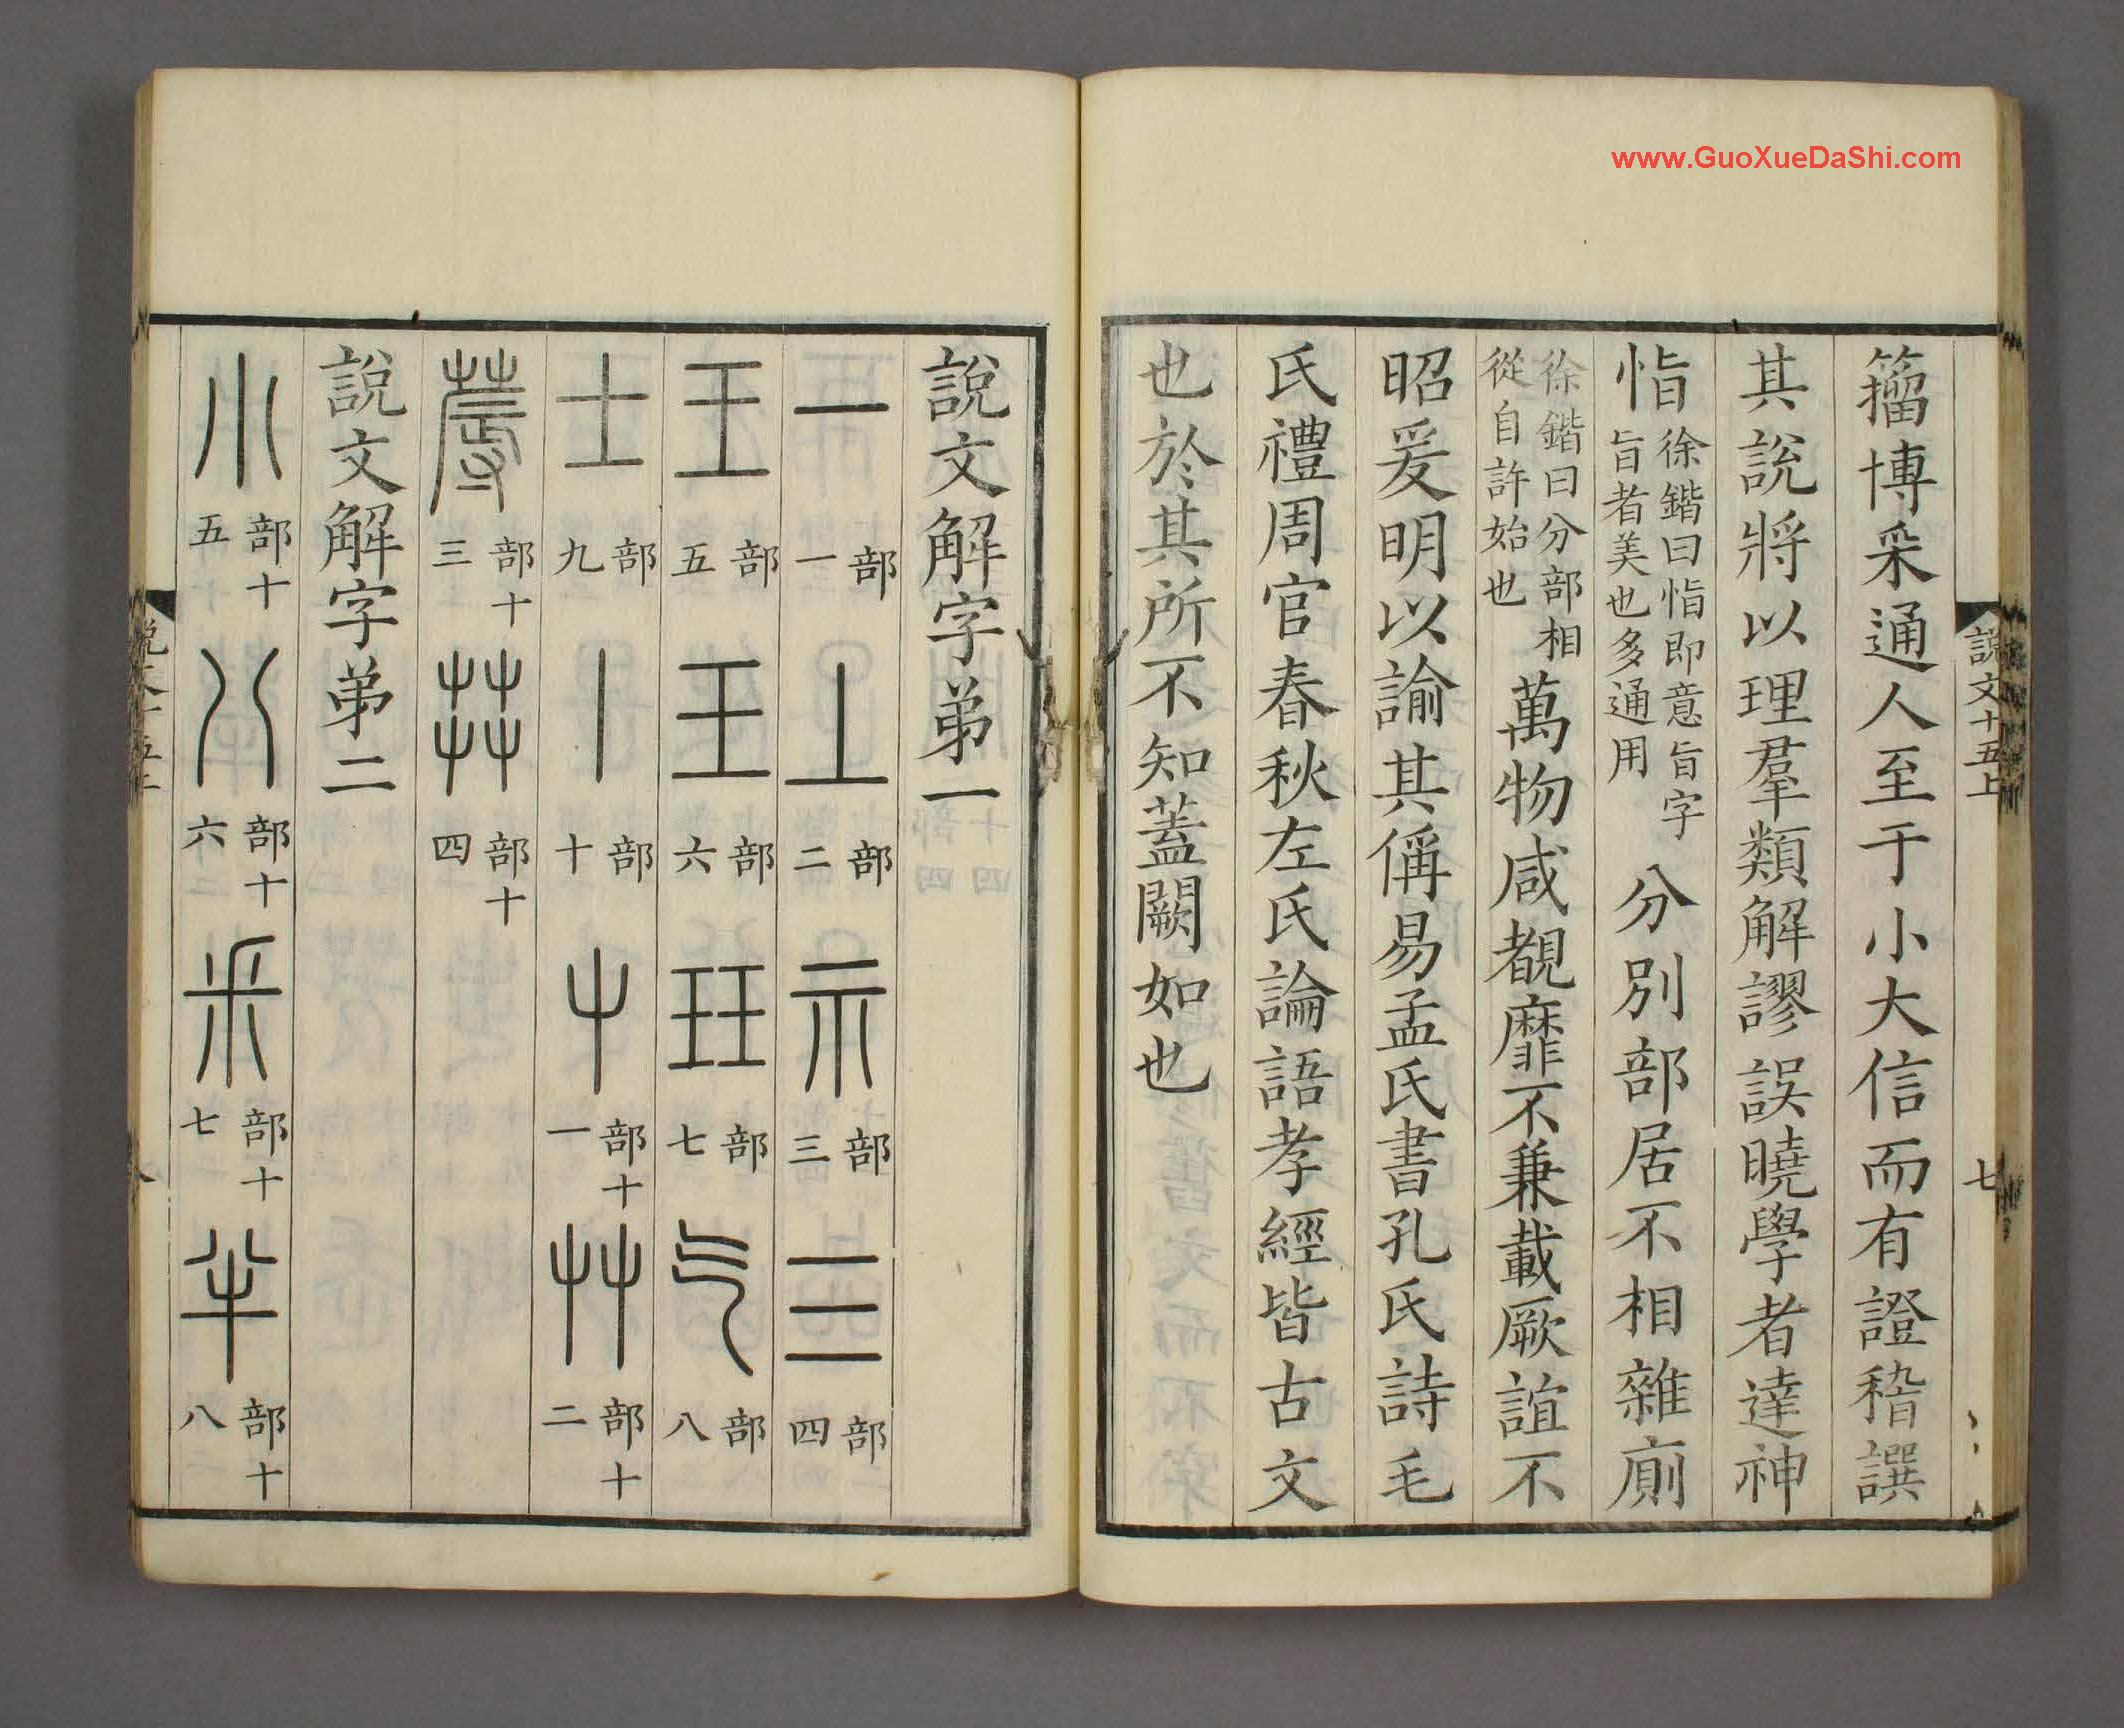 www.GuoXueDaShi.com
說文十五上
七
籀博采通人至于小大信而有證稽譔
其說將以理羣類解謬誤曉學者達神
恉徐鍇曰恉即意旨字旨者美也多通用分別部居不相雜廁
徐鍇曰分部相從自許始也萬物咸覩靡不兼載厥誼不
昭爰明以諭其偁易孟氏書孔氏詩毛
氏禮周官春秋左氏論語孝經皆古文
也於其所不知蓋闕如也
說文解字弟一
一部一丄部二示部三三部四
王部五王部六玨部七气部八
士部九丨部十屮部十一艸部十二
蓐部十三茻部十四
說文解字弟二
小部十五八部十六釆部十七半部十八